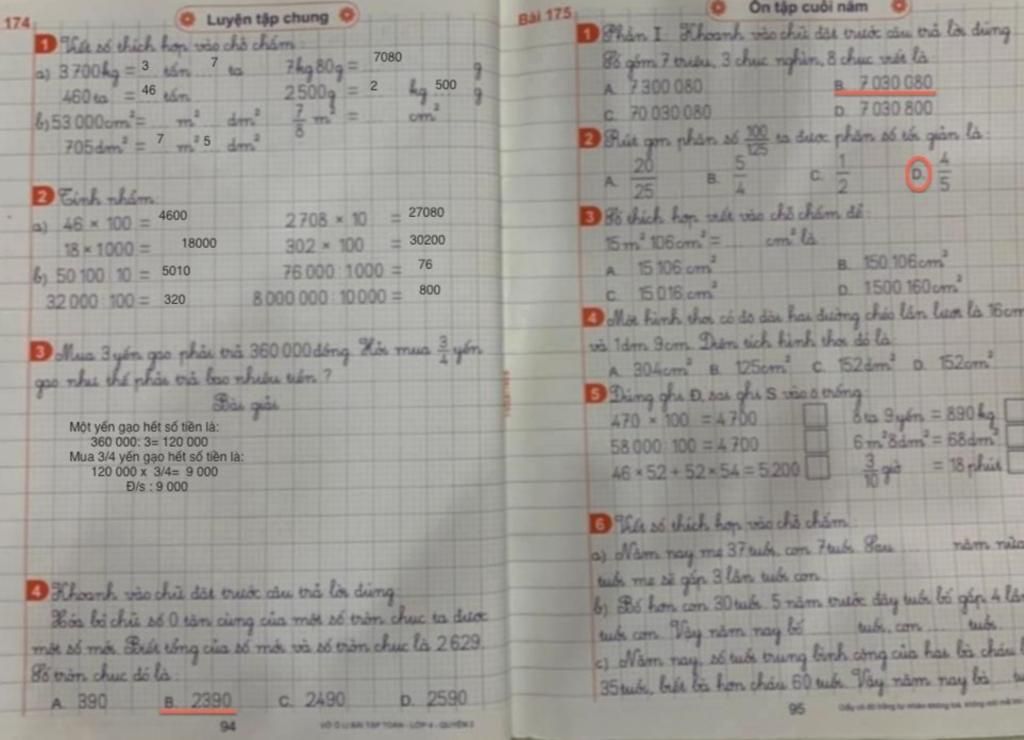 174
Luyện tập chung
1 Viết số thích hợp vào chỗ chấm:
a) 3700kg = 3 tấn 7 tạ 7kg 80g = 7080 g
460 tạ = 46 tấn 2500g = 2 kg 500 g
b) 53 000cm² = m² dm² 7/8 m² = cm²
705dm² = 7 m² 5 dm²
2 Tính nhẩm:
a) 46 × 100 = 4600 2708 × 10 = 27080
18 × 1000 = 18000 302 × 100 = 30200
b) 50 100 : 10 = 5010 76 000 : 1000 = 76
32 000 : 100 = 320 8 000 000 : 10 000 = 800
3 Mua 3 yến gạo phải trả 360 000 đồng. Hỏi mua 3/4 yến
gạo như thế phải trả bao nhiêu tiền?
Bài giải
Một yến gạo hết số tiền là:
360 000: 3= 120 000
Mua 3/4 yến gạo hết số tiền là:
120 000 x 3/4= 9 000
Đ/s : 9 000
4 Khoanh vào chữ đặt trước câu trả lời đúng
Xóa bỏ chữ số 0 tận cùng của một số tròn chục ta được
một số mới. Biết tổng của số mới và số tròn chục là 2629.
Số tròn chục đó là:
A. 390 B. 2390 C. 2490 D. 2590
94
VỞ Ô LI BÀI TẬP TOÁN - LỚP 4 - QUYỂN 2
Bài 175
Ôn tập cuối năm
1 Phần I. Khoanh vào chữ đặt trước câu trả lời đúng
Số gồm 7 triệu, 3 chục nghìn, 8 chục viết là
A. 7 300 080 B. 7 030 080
C. 70 030 080 D. 7 030 800
2 Rút gọn phân số 100/125 ta được phân số tối giản là:
A. 20/25 B. 5/4 C. 1/2 D. 4/5
3 Số thích hợp viết vào chỗ chấm để:
15m² 106cm² = cm² là
A. 15 106 cm² B. 150 106cm²
C. 15 016 cm² D. 1 500 160cm²
4 Một hình thoi có độ dài hai đường chéo lần lượt là 16cm
và 1dm 9cm. Diện tích hình thoi đó là:
A. 304cm² B. 125cm² C. 152dm² D. 152cm²
5 Đúng ghi Đ, sai ghi S vào ô trống:
470 × 100 = 4 700 8 tạ 9 yến = 890 kg
58 000 : 100 = 4 700 6m² 8dm² = 68dm²
46 × 52 + 52 × 54 = 5 200 3/10 giờ = 18 phút
6 Viết số thích hợp vào chỗ chấm:
a) Năm nay mẹ 37 tuổi, con 7 tuổi. Sau ... năm nữa
tuổi mẹ sẽ gấp 3 lần tuổi con.
b) Bố hơn con 30 tuổi. 5 năm trước đây tuổi bố gấp 4 lần
tuổi con. Vậy năm nay bố ... tuổi, con ... tuổi.
c) Năm nay, số tuổi trung bình cộng của hai bà cháu l
35 tuổi, biết bà hơn cháu 60 tuổi. Vậy năm nay bà ... t
95